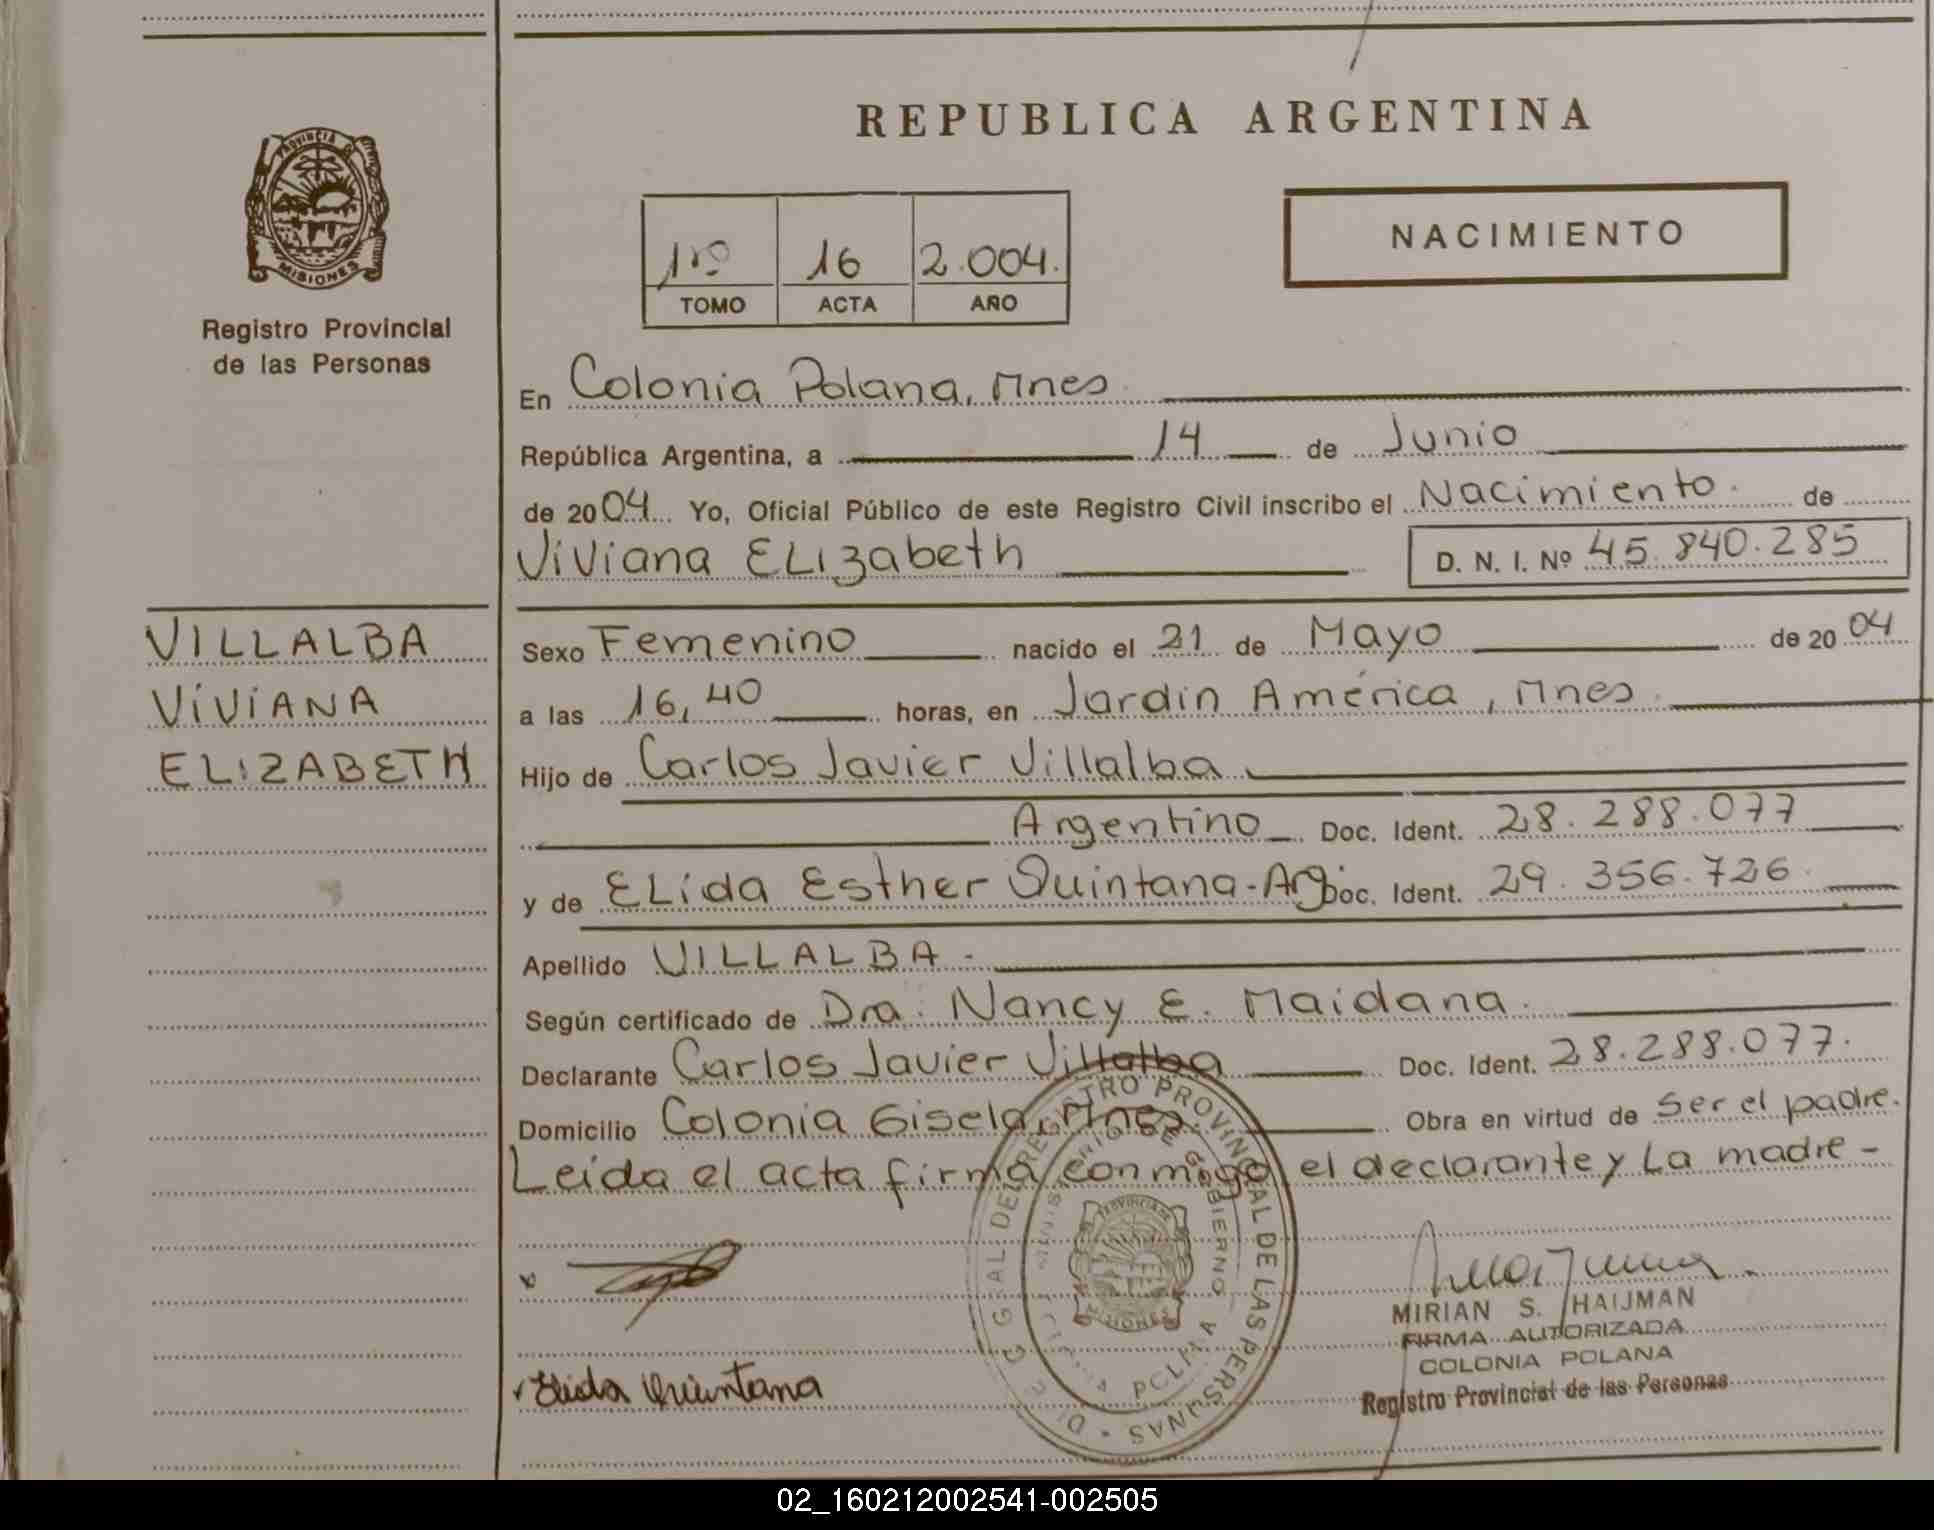 PROVINCIA DE
MISIONES
Registro Provincial
de las Personas
VILLALBA
VIVIANA
ELIZABETH
REPUBLICA ARGENTINA
1ro 16 2.004.
TOMO ACTA AÑO
NACIMIENTO
En Colonia Polana, Mnes
República Argentina, a 14 de Junio
de 2004 Yo, Oficial Público de este Registro Civil inscribo el Nacimiento. de
Viviana ELizabeth D. N. I. Nº 45.840.285
Sexo Femenino nacido el 21 de Mayo de 2004
a las 16,40 horas, en Jardin América, Mnes.
Hijo de Carlos Javier Villalba
Argentino Doc. Ident. 28.288.077
y de ELida Esther Quintana-Arg. Doc. Ident. 29.356.726.
Apellido VILLALBA.-
Según certificado de Dra. Nancy E. Maidana.
Declarante Carlos Javier Villalba Doc. Ident. 28.288.077.
Domicilio Colonia Gisela, Mnes. Obra en virtud de ser el padre.
Leida el acta firma conmigo el declarante y La madre -
REGISTRO PROVINCIAL DE LAS PERSONAS
MINISTERIO DE GOBIERNO
PROVINCIA DE
MISIONES
MIRIAN S. HAIJMAN
FIRMA AUTORIZADA
COLONIA POLANA
Registro Provincial de las Personas
Elida Quintana
02_160212002541-002505